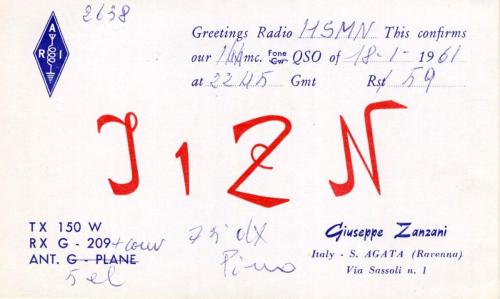 2638
A
R I
Greetings Radio HSMN This confirms
our 144 mc. Fone Cw QSO of 18-1-1961
at 2245 Gmt Rst 59
I1ZN
TX 150 W
RX G - 209 + conv
ANT. G - PLANE
5 el
73 dx
Pino
Giuseppe Zanzani
Italy - S. AGATA (Ravenna)
Via Sassoli n. 1